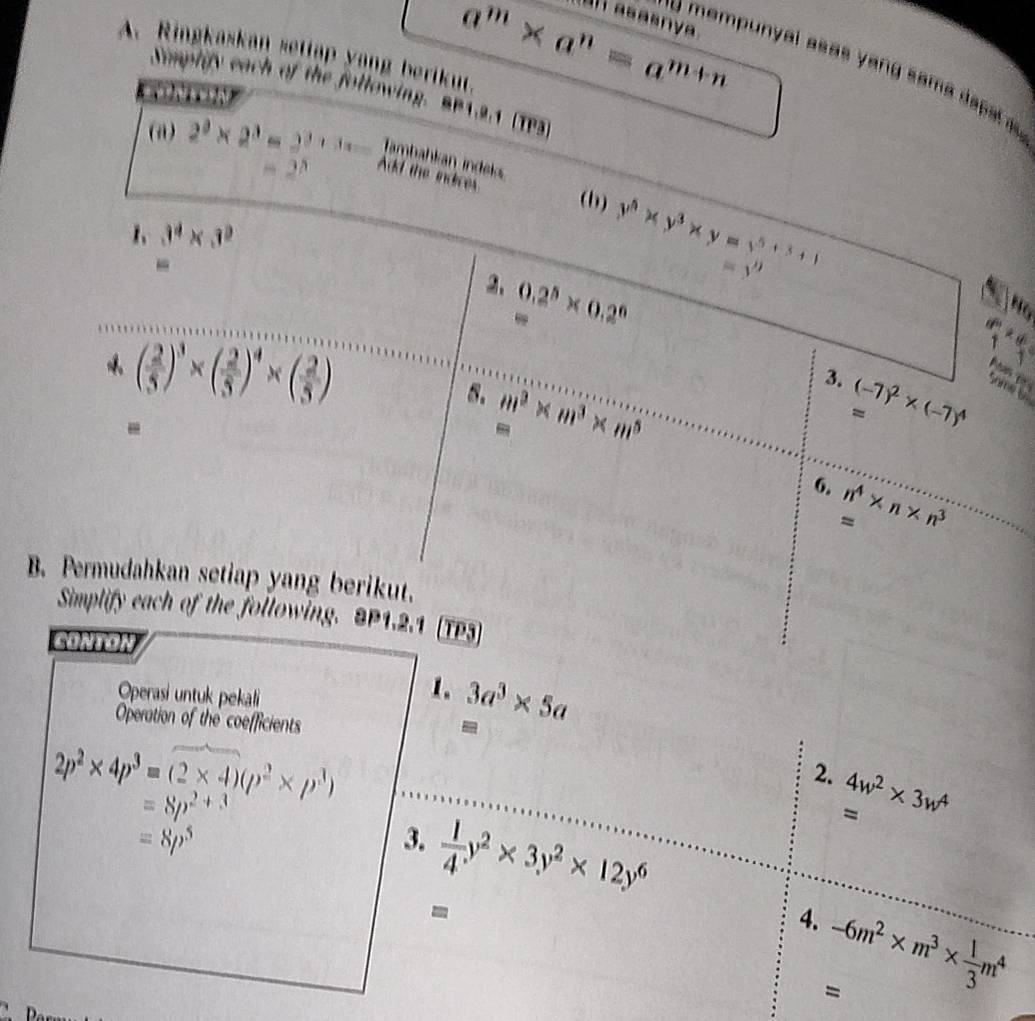 mempunyai asas yang sama dapat
asasnya.
a^m × a^n = a^{m+n}
A. Ringkaskan setiap yang berikut.
Simplify each of the following. SP1.2.1 TP3
CONTOH
(a) 2² × 2³ = 2^{2+3} Tambahkan indeks.
Add the indices.
= 2⁵
(b) y⁵ × y³ × y = y^{5+3+1}
= y⁹
1. 3⁴ × 3²
=
2. 0.2⁵ × 0.2⁶
=
3. (−7)² × (−7)⁴
=
4. (2/5)³ × (2/5)⁴ × (2/5)
=
5. m² × m³ × m⁵
=
6. n⁴ × n × n³
=
B. Permudahkan setiap yang berikut.
Simplify each of the following. SP1.2.1 TP3
CONTOH
Operasi untuk pekali
Operation of the coefficients
2p² × 4p³ = (2 × 4)(p² × p³)
= 8p^{2+3}
= 8p⁵
1. 3a³ × 5a
=
2. 4w² × 3w⁴
=
3. 1/4 y² × 3y² × 12y⁶
=
4. −6m² × m³ × 1/3 m⁴
=